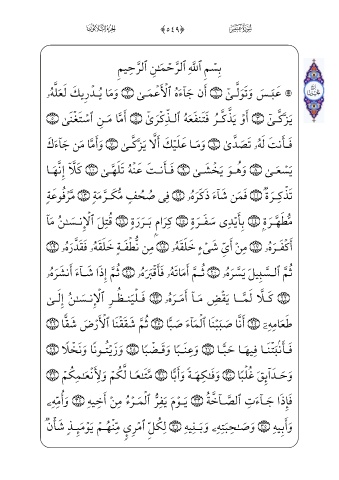 سُورَةُ عَبَسَ ﴿٥٤٩﴾ الجُزءُ الثَّلَاثُونَ
بِسْمِ ٱللَّهِ ٱلرَّحْمَـٰنِ ٱلرَّحِيمِ
۞ عَبَسَ وَتَوَلَّىٰٓ ۝١ أَن جَآءَهُ ٱلْأَعْمَىٰ ۝٢ وَمَا يُدْرِيكَ لَعَلَّهُۥ
يَزَّكَّىٰٓ ۝٣ أَوْ يَذَّكَّرُ فَتَنفَعَهُ ٱلذِّكْرَىٰٓ ۝٤ أَمَّا مَنِ ٱسْتَغْنَىٰ ۝٥
فَأَنتَ لَهُۥ تَصَدَّىٰ ۝٦ وَمَا عَلَيْكَ أَلَّا يَزَّكَّىٰ ۝٧ وَأَمَّا مَن جَآءَكَ
يَسْعَىٰ ۝٨ وَهُوَ يَخْشَىٰ ۝٩ فَأَنتَ عَنْهُ تَلَهَّىٰ ۝١٠ كَلَّآ إِنَّهَا
تَذْكِرَةٌ ۝١١ فَمَن شَآءَ ذَكَرَهُۥ ۝١٢ فِى صُحُفٍ مُّكَرَّمَةٍ ۝١٣ مَّرْفُوعَةٍ
مُّطَهَّرَةٍۭ ۝١٤ بِأَيْدِى سَفَرَةٍ ۝١٥ كِرَامٍۭ بَرَرَةٍ ۝١٦ قُتِلَ ٱلْإِنسَـٰنُ مَآ
أَكْفَرَهُۥ ۝١٧ مِنْ أَىِّ شَىْءٍ خَلَقَهُۥ ۝١٨ مِن نُّطْفَةٍ خَلَقَهُۥ فَقَدَّرَهُۥ ۝١٩
ثُمَّ ٱلسَّبِيلَ يَسَّرَهُۥ ۝٢٠ ثُمَّ أَمَاتَهُۥ فَأَقْبَرَهُۥ ۝٢١ ثُمَّ إِذَا شَآءَ أَنشَرَهُۥ
۝٢٢ كَلَّا لَمَّا يَقْضِ مَآ أَمَرَهُۥ ۝٢٣ فَلْيَنظُرِ ٱلْإِنسَـٰنُ إِلَىٰ
طَعَامِهِۦٓ ۝٢٤ أَنَّا صَبَبْنَا ٱلْمَآءَ صَبًّا ۝٢٥ ثُمَّ شَقَقْنَا ٱلْأَرْضَ شَقًّا ۝٢٦
فَأَنۢبَتْنَا فِيهَا حَبًّا ۝٢٧ وَعِنَبًا وَقَضْبًا ۝٢٨ وَزَيْتُونًا وَنَخْلًا ۝٢٩
وَحَدَآئِقَ غُلْبًا ۝٣٠ وَفَـٰكِهَةً وَأَبًّا ۝٣١ مَّتَـٰعًا لَّكُمْ وَلِأَنْعَـٰمِكُمْ ۝٣٢
فَإِذَا جَآءَتِ ٱلصَّآخَّةُ ۝٣٣ يَوْمَ يَفِرُّ ٱلْمَرْءُ مِنْ أَخِيهِ ۝٣٤ وَأُمِّهِۦ
وَأَبِيهِ ۝٣٥ وَصَـٰحِبَتِهِۦ وَبَنِيهِ ۝٣٦ لِكُلِّ ٱمْرِئٍ مِّنْهُمْ يَوْمَئِذٍ شَأْنٌ